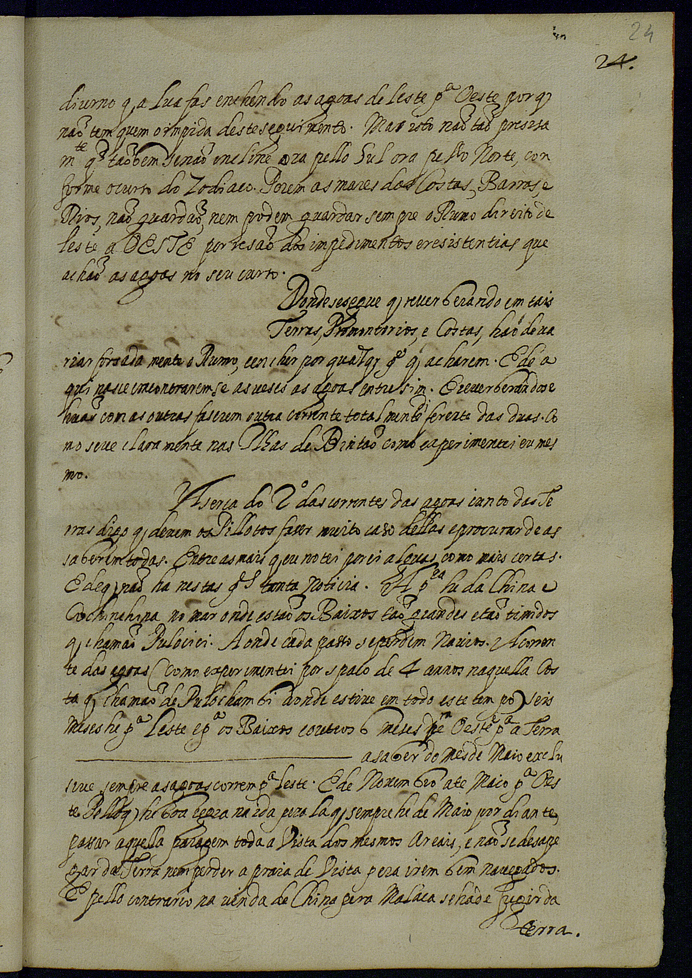 24
24.
diurno q̃ a Lua fas enchendo as agoas de leste p.ª Oeste por q̃
naõ tem quem o impida deste seguimento. Mas isto naõ taõ presisa
m.te q̃ taõbem senaõ encline ora pello Sul ora pello Norte, con
forme o curso do Zodiaco. Porem as mares das Costas, Barras e
Rios, naõ guardaõ nem podem guardar sempre o Rumo direito de
leste a OESTE por resaõ dos impedimentos e resistentias que
achaõ as agoas no seu curso.
Donde se segue q̃ reverberando em tais
Terras, Promontorios, e Costas, haõ de va
riar forsada mente o Rumo, e encher por qualq̃r p.te q̃ acharem. E de a
qui nasce encontrarem se as veses as agoas entre sim. E reverberandose
huãs com as outras faserem outra corrente totalmente ferente das duas. Co
mo se ve clara mente nas Ilhas de Bintaõ como experimentei eu mes
mo.
Aserca do 2.º das correntes das agoas junto das Te
rras digo q̃ devem os Pillotos faser muito caso dellas e procurar de as
saberem todas. Entre as mais q̃ eu notei porei alguas, como mais certas.
E de q̃ naõ ha nestas p.tes tanta noticia. A p.ra he da China e
Cochinchina no mar onde estaõ os Baixos taõ grandes e taõ timidos
q̃ chamaõ Pulocici. Aonde cada passo se perdem Navios. A corren
te das agoas (como experimentei por spaço de 4 annos naquella Cos
ta q̃ chamaõ de Pulochambi aonde estive em todo este tempo) seis
meses he p.ª Leste e p.ª os Baixos e outros 6 meses p.ª Oeste p.ª a Terra
a saber do mes de Maio exclu
sive sempre as agoas correm p.ª leste. E de Novembro ate Maio p.ª Oes
te Pello q̃ he boa regra na ida pera la q̃ sempre he de Maio por diante,
passar aquella paragem toda a Vista dos mesmos Areais, e naõ se desape
gar da Terra nem perder a praia de Vista pera irem bem navegados.
E pello contrario na vinda de China pera Malaca se ha de fugir da
Terra.